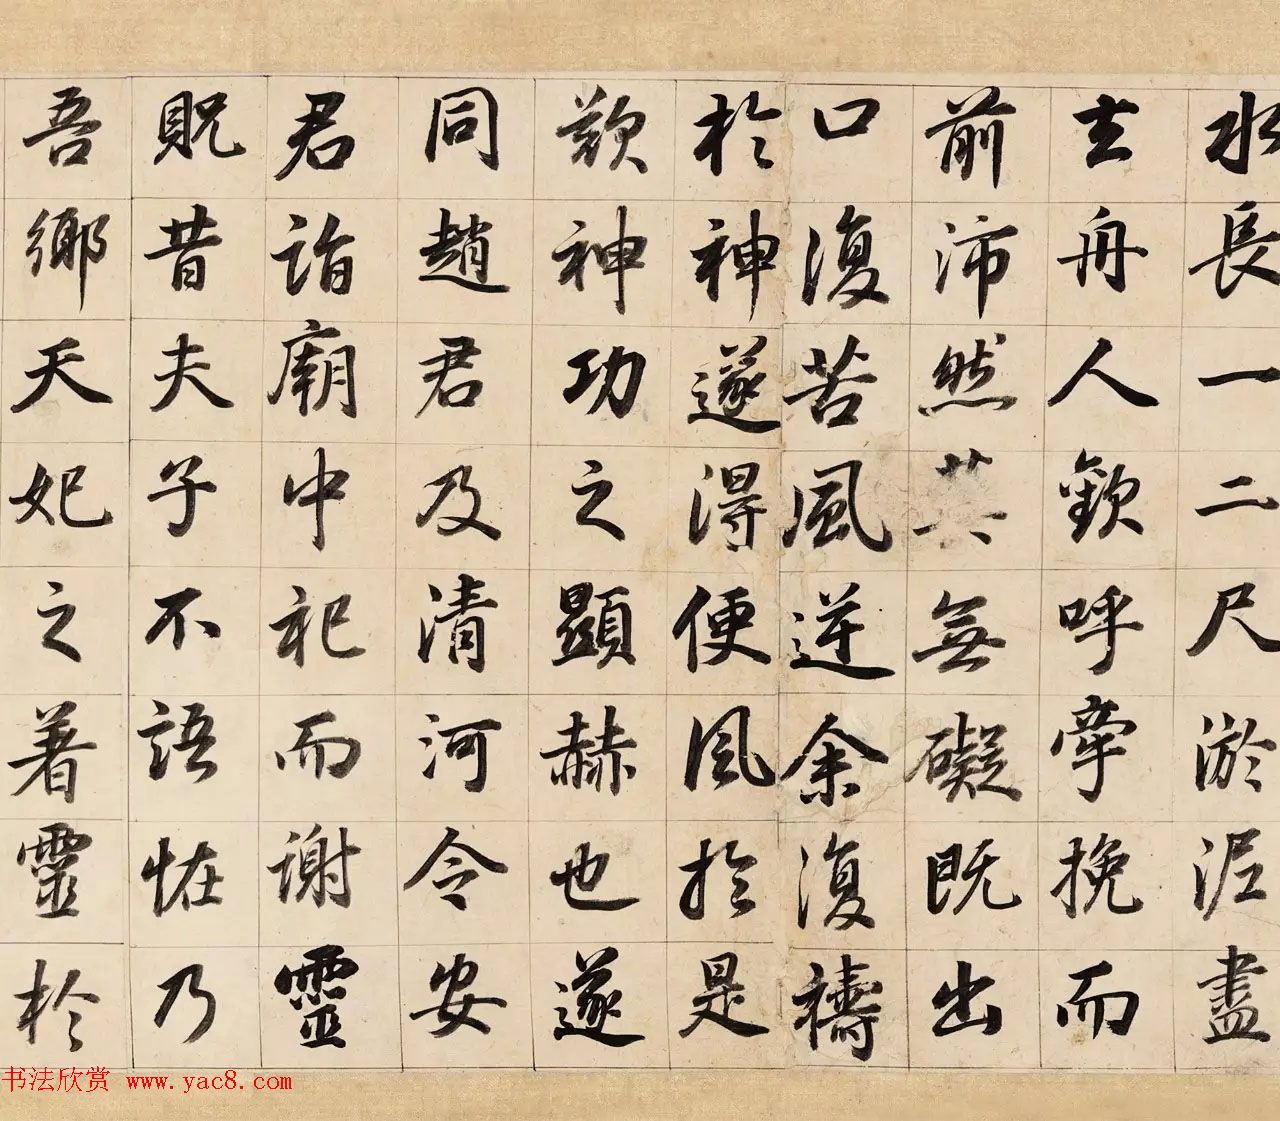 水長一二尺淤泥盡
去舟人歡呼牽挽而
前沛然莫無礙既出
口復苦風逆余復禱
於神遂得便風於是
歎神功之顯赫也遂
同趙君及清河令安
君詣廟中祀而謝靈
貺昔夫子不語怪乃
吾鄉天妃之著靈於
书法欣赏 www.yac8.com